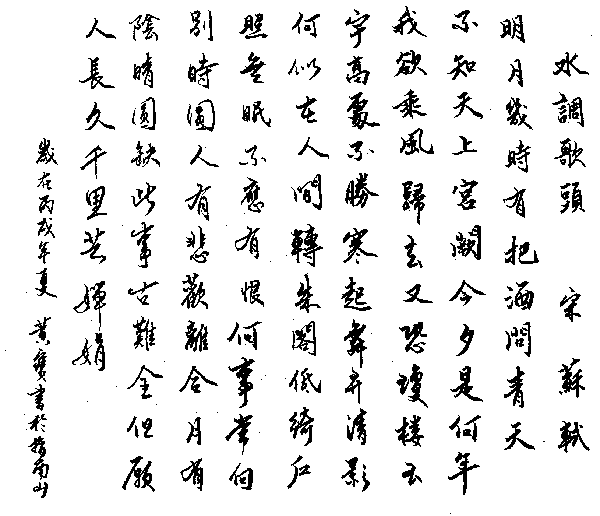 水調歌頭 宋 蘇軾
明月幾時有把酒問青天
不知天上宮闕今夕是何年
我欲乘風歸去又恐瓊樓玉
宇高處不勝寒起舞弄清影
何似在人間轉朱閣低綺戶
照無眠不應有恨何事常向
別時圓人有悲歡離合月有
陰晴圓缺此事古難全但願
人長久千里共嬋娟
歲在丙戌年夏 黃書於南山